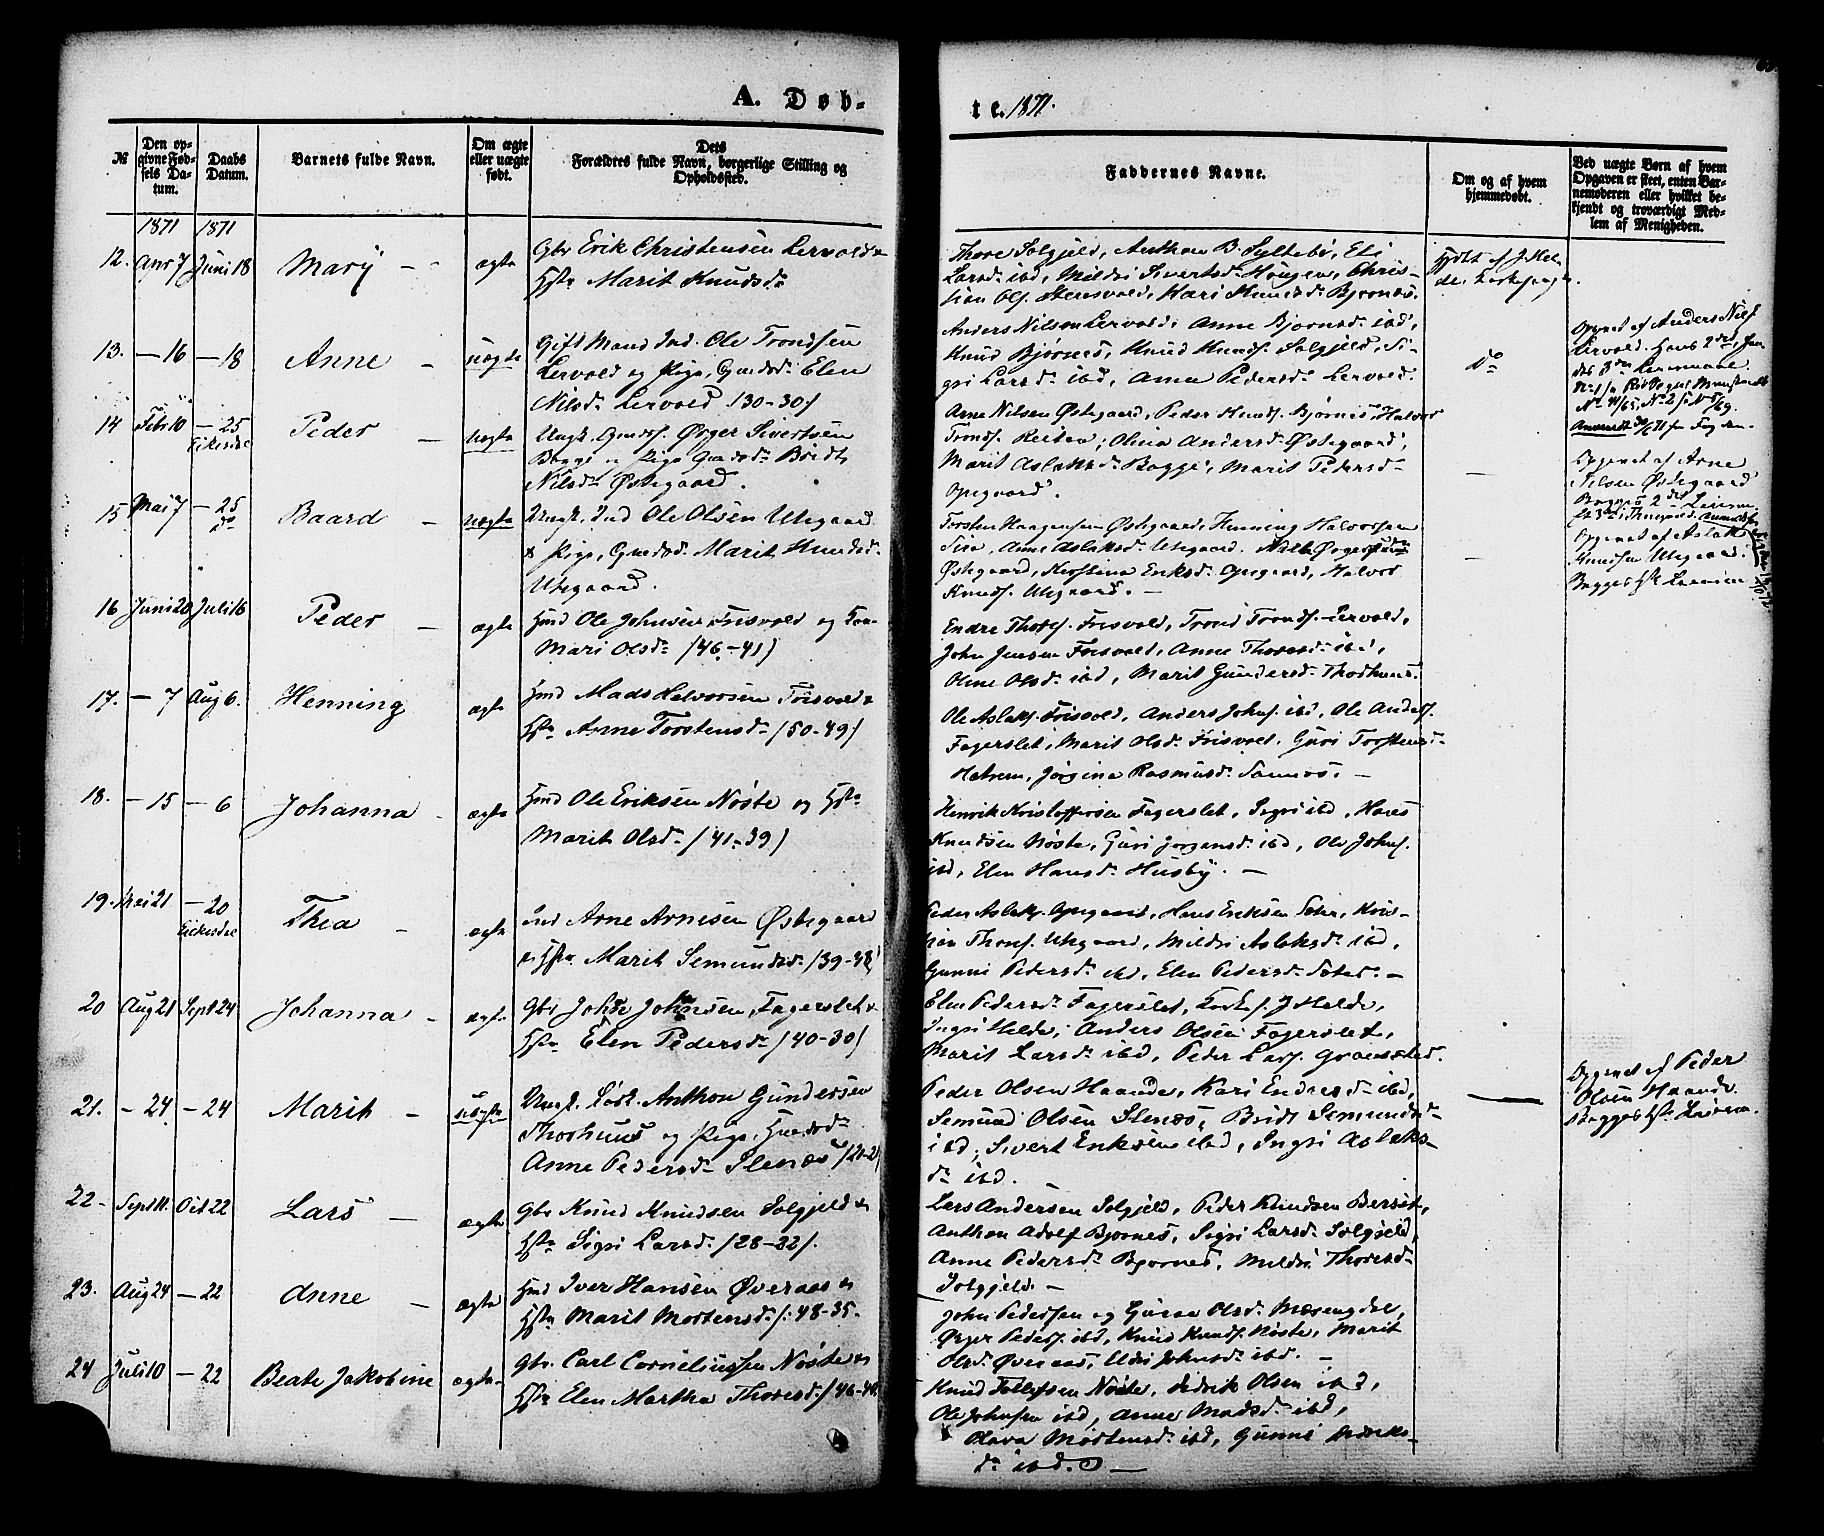 A. Døb-
te. 1871.
No
Den opgivne Fødsels Datum.
Daabs Datum.
Barnets fulde Navn.
Om ægte eller uægte født.
Dets Forældres fulde Navn, borgerlige Stilling og Opholdssted.
Faddernes Navne.
Om og af hvem hjemmedøbt.
Ved uægte Børn af hvem Opgaven er skeet, enten Barnemoderen eller hvilket bekjendt og troværdigt Medlem af Menigheden.
1871 1871
12. Apr 7 Juni 18 Mary - ægte
Gbr Erik Christensen Lervold &
Hst Marit Knudsdr
Thore Solgjeld, Anthon B. Syltebø, Eli
Larsd. ibd, Mildri Sivertsd. Hougen, Chris-
tian Ols. Stensvold, Kari Knudsd. Bjørnæs.
13. - 16 - 18 Anne - uægte
Gift Mand Ind. Ole Trondsen
Lervold og Pige, Gmdsd. Elen
Nilsdr Lervold /30-30/
Anders Nilsen Lervold, Anne Bjørnsd. ibd,
Knud Bjørnes, Knud Knuds. Solgjeld, Si-
gri Larsd. ibd, Anne Pedersd. Lervold.
do
Opgivet af Anders Nils
Lervold. Hans 2den,
14 Feb 10 - 25 Eikesdal Peder - uægte
Ungk. Gmds. Ørger Sivertsen
Bogge og Pige Gmdsd. Bridt
Nilsdr Østegaard.
Arne Nilsen Østegaard, Peder Knuds. Bjørnes, Halvor
Tronds. Reiten, Olina Andersd. Østegaard,
Marit Aslaksd. Bogge, Marit Pedersd.
Opegaard.
-
Opgivet af Arne
Nilsen Østegaard
Begges 2den Leierm.
15 Mai 7 - 25 do Baard - uægte
Ungk. Ind Ole Olsen Utegaard
& Pige, Gmdsd. Marit Knudsd.
Utegaard.
Torsten Haagensen Østegaard, Henning Halvorsen
Sira, Anne Aslaksd. Utegaard.
Østegaard, Kirstina Eriksd. Opegaard, Halvor
Knuds. Utegaard. -
-
Opgivet af Aslak
Knudsen Utegaard.
Begges 1ste Leierm.
16 Juni 20 Juli 16 Peder - ægte
Hmd Ole Johnsen Frisvold og Kone
Mari Olsdr /46-41)
Endre Thores. Frisvold, Trond Tronds. Lervold,
John Jensen Frisvold, Anne Thoresd. ibd,
Oline Olsd. ibd, Marit Gundersd. Thorhuus.
17. - 7 Aug 6. Henning ægte
Hmd Mads Halvorsen Frisvold &
Hst Anne Torstensdr /50-49/
Ole Aslaks. Frisvold, Anders Johns. ibd, Ole Anders.
Fagerslet, Marit Olsd. Frisvold, Guri Torstensd.
Hatrem, Jørgina Rasmusd. Sannes. -
18. - 15 - 6 Johanna - ægte
Hmd Ole Eriksen Nøste og Hst
Marit Olsdr /41-39)
Henrik Kristoffersen Fagerslet, Ingri ibd, Hans
Knudsen Nøste, Guri Jørgensd. ibd, Ole Johns.
ibd, Elen Hansd. Husby. -
19. Mai 21 - 20 Eikesdal Thea - ægte
Ind Arne Arnesen Østegaard
& Hst Marit Semundsd. /39-42)
Peder Aslaks. Opegaard, Hans Eriksen Seter, Kris-
tian Thores. Utegaard, Mildri Aslaksd. ibd,
Gunni Pedersd. ibd, Elen Pedersd. Seter. -
20 Aug 21 Sept 24 Johanna - ægte
Gbr John Johnsen, Fagerslet &
Hst Elen Pedersdr /40-30/
Elen Pedersd. Fagerslet, Kirkes. J Helde,
Ingri Helde, Anders Olsen Fagerslet,
Marit Larsd. ibd, Peder Lars.
21. - 24 - 24 Marit - uægte
Ungk. Anthon Gundersen
Thorhuus og Pige,
Anne Pedersdr Slenæs
Peder Olsen Haande, Kari Endresd. ibd,
Semund Olsen Slenæs, Bridt Semundsd.
ibd, Sivert Eriksen ibd, Ingri Aslaks-
dr ibd.
-
Opgivet af Peder
Olsen Haande.
Begges 1ste Leierm.
22. Sept 11. Oct 22 Lars - ægte
Gbr Knud Knudsen Solgjeld &
Hst Sigri Larsd. /28-22/.
Lars Andersen Solgjeld, Peder Knudsen Bersæt,
Anthon Adolf Bjørnes, Sigri Larsd. Solgjeld,
Anne Pedersd. Bjørnes, Mildri Thoresd.
Solgjeld. -
23. Aug 24 - 22 Anne - ægte
Hmd Iver Hansen Øveraas &
Hst Marit Mortensd. /: 48-35.
John Pedersen og Guroe Olsd. Mærengdal,
Ørger Peders. ibd, Knud Knuds. Nøste, Marit
Olsd. Øveraas, Udri Johnsd. ibd. -
24 Juli 10 - 22 Beate Jakobine ægte
Gbr. Carl Corneliussen Nøste &
Hst Elen Martha Thoresd. /46-40
Knud Tollefsen Nøste, Didrik Olsen ibd,
Ole Johnsen ibd, Anne Madsd. ibd,
Olava Mortensd. ibd, Gunni Didriks-
dr ibd. -